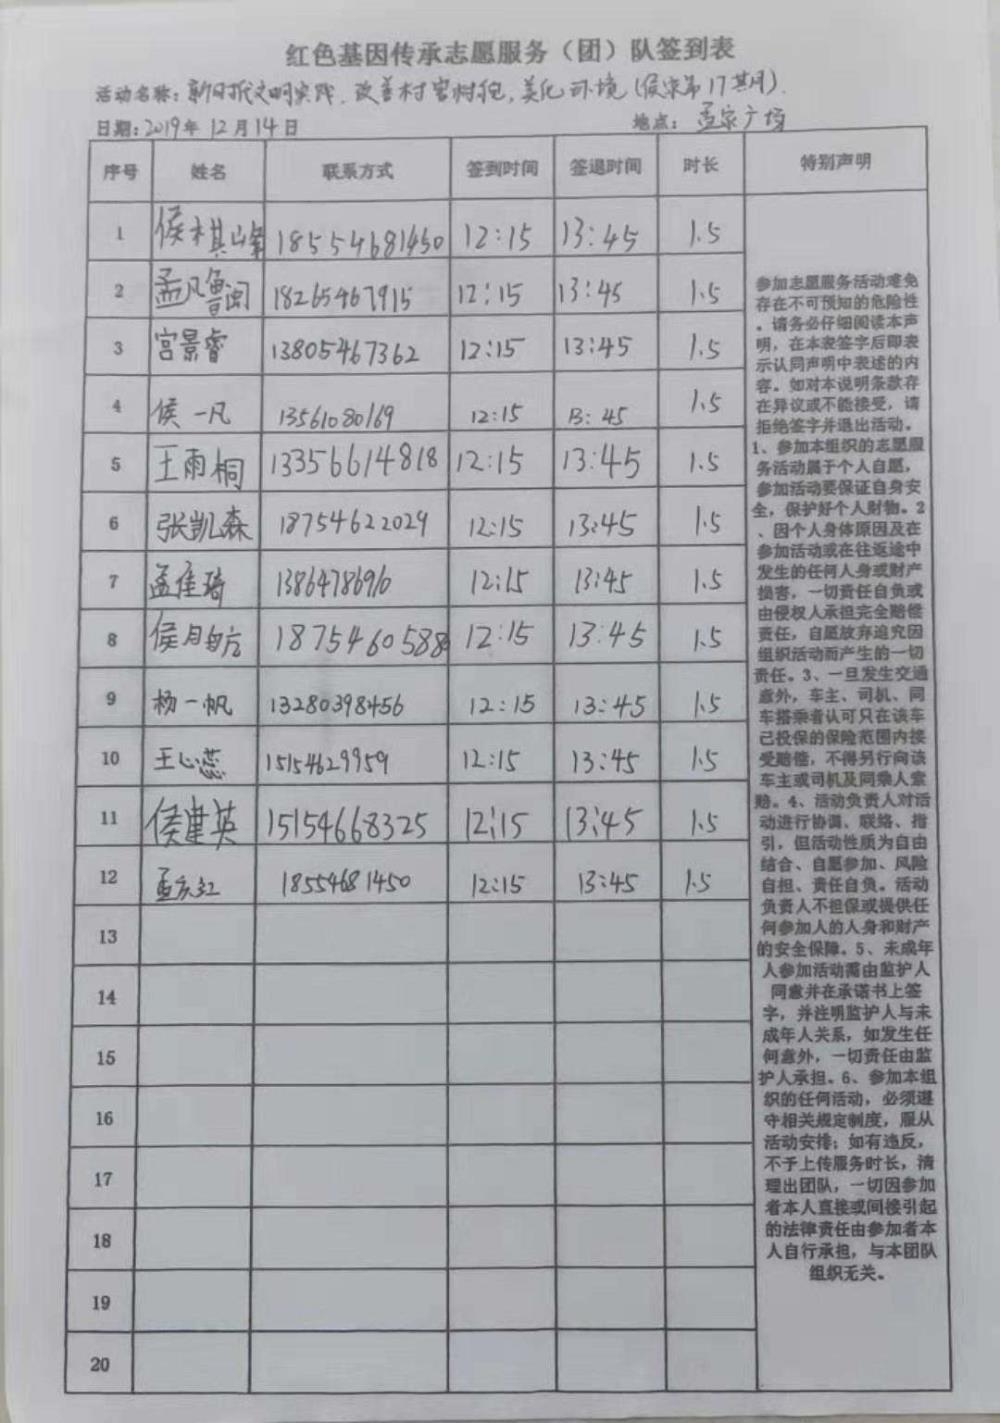 红色基因传承志愿服务（团）队签到表
活动名称：新时代文明实践，改善村容村貌，美化环境（侯家第17期）.
日期：2019年 12月14日 地点：孟家广场
序号 姓名 联系方式 签到时间 签退时间 时长 特别声明
1 侯棋峰 18554681450 12:15 13:45 1.5
2 孟凡鲁闽 18265467915 12:15 13:45 1.5
3 宫景睿 13805467362 12:15 13:45 1.5
4 侯一凡 13561080169 12:15 13:45 1.5
5 王雨桐 13356614818 12:15 13:45 1.5
6 张凯森 18754622029 12:15 13:45 1.5
7 孟佳琦 13864786910 12:15 13:45 1.5
8 侯月 18754605888 12:15 13:45 1.5
9 杨一帆 13280398456 12:15 13:45 1.5
10 王心蕊 15154629959 12:15 13:45 1.5
11 侯建英 15154668325 12:15 13:45 1.5
12 孟庆红 18554681450 12:15 13:45 1.5
13
14
15
16
17
18
19
20
参加志愿服务活动难免
存在不可预知的危险性
。请务必仔细阅读本声
明，在本表签字后即表
示认同声明中表述的内
容。如对本说明条款存
在异议或不能接受，请
拒绝签字并退出活动。
1、参加本组织的志愿服
务活动属于个人自愿，
参加活动要保证自身安
全，保护好个人财物。2
、因个人身体原因及在
参加活动或在往返途中
发生的任何人身或财产
损害，一切责任自负或
由侵权人承担完全赔偿
责任，自愿放弃追究因
组织活动而产生的一切
责任。3、一旦发生交通
意外，车主、司机、同
车搭乘者认可只在该车
已投保的保险范围内接
受赔偿，不得另行向该
车主或司机及同乘人索
赔。4、活动负责人对活
动进行协调、联络、指
引，但活动性质为自由
结合、自愿参加、风险
自担、责任自负。活动
负责人不担保或提供任
何参加人的人身和财产
的安全保障。5、未成年
人参加活动需由监护人
同意并在承诺书上签
字，并注明监护人与未
成年人关系，如发生任
何意外，一切责任由监
护人承担。6、参加本组
织的任何活动，必须遵
守相关规定制度，服从
活动安排；如有违反，
不予上传服务时长，清
理出团队，一切因参加
者本人直接或间接引起
的法律责任由参加者本
人自行承担，与本团队
组织无关。